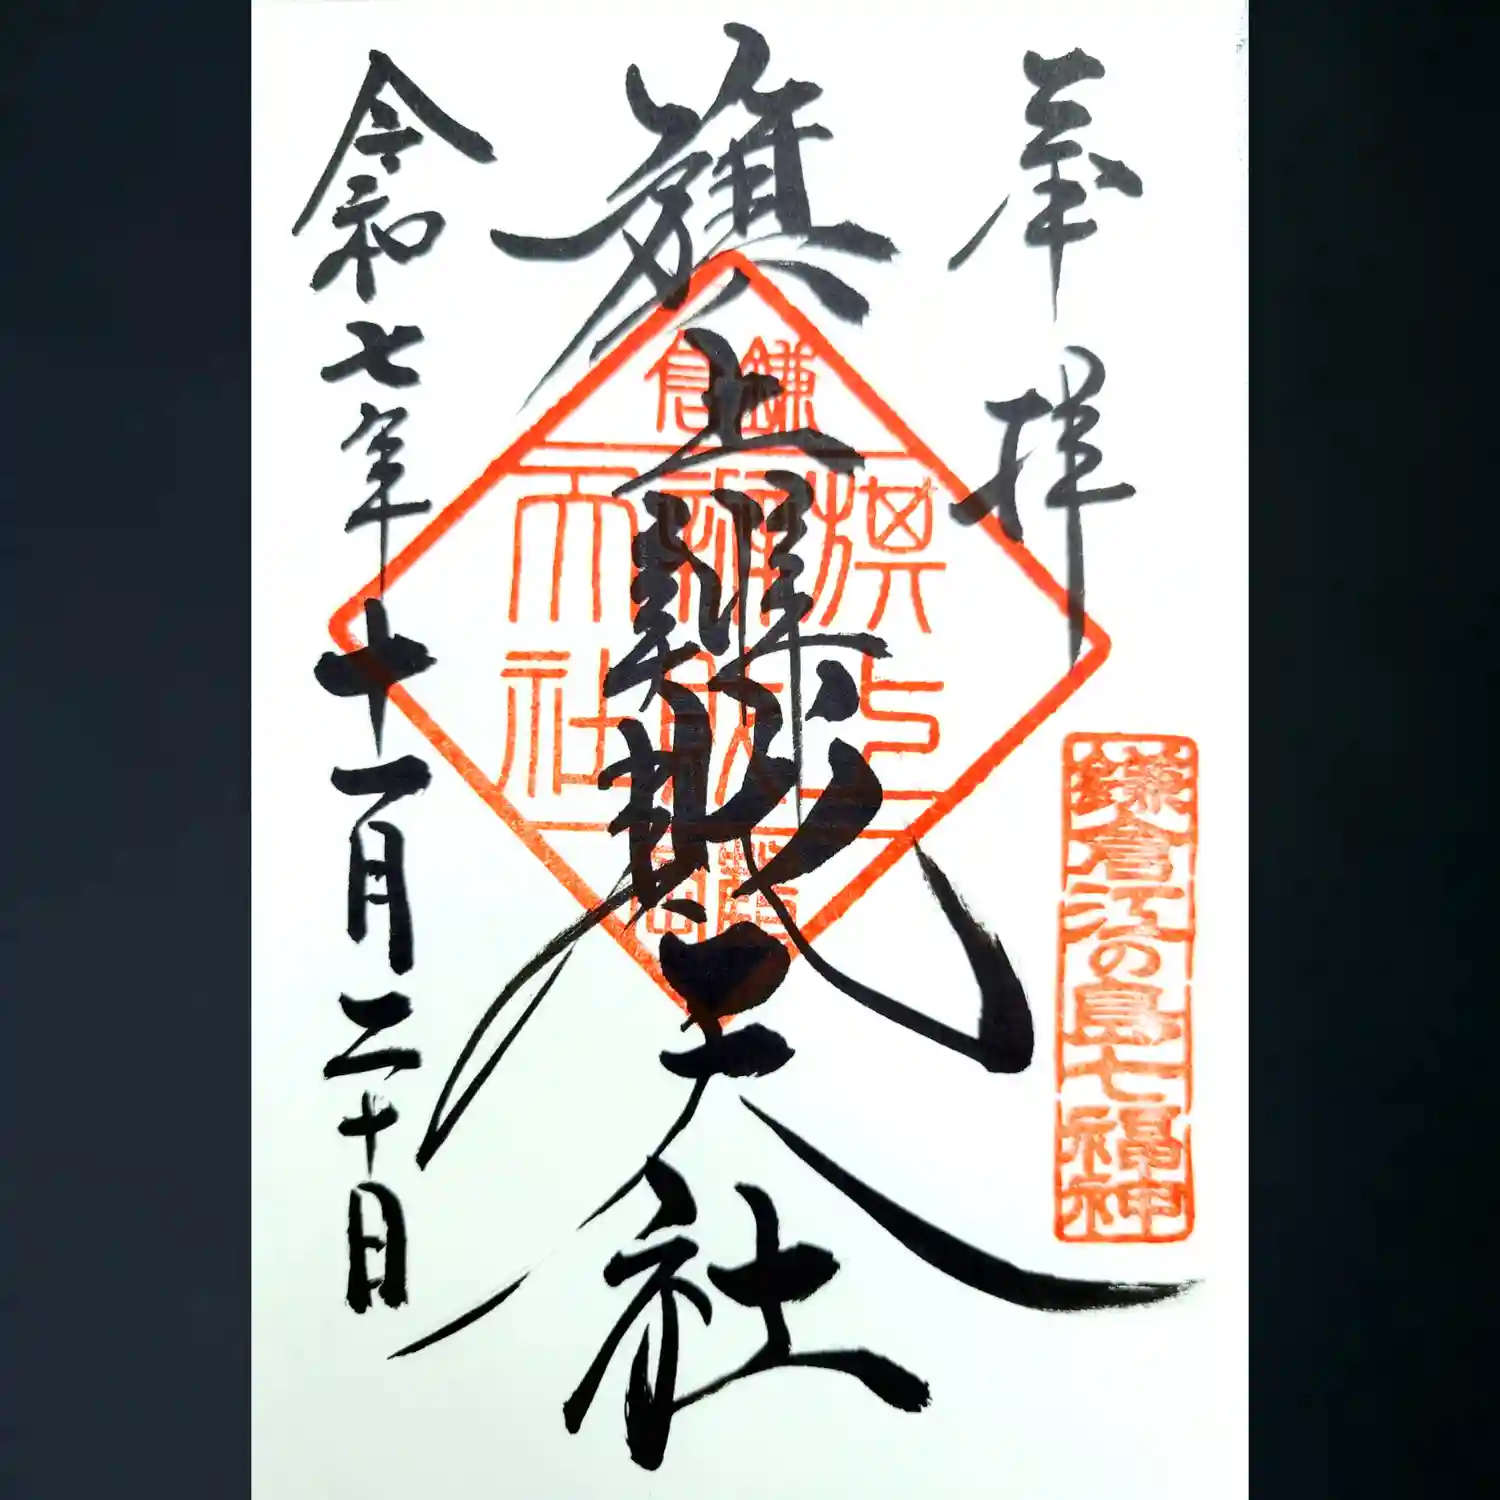 奉拝
鎌倉江の島七福神
旗上辨財天社
鎌倉
旗上
辨財
天社
鶴岡
令和七年十一月二十日